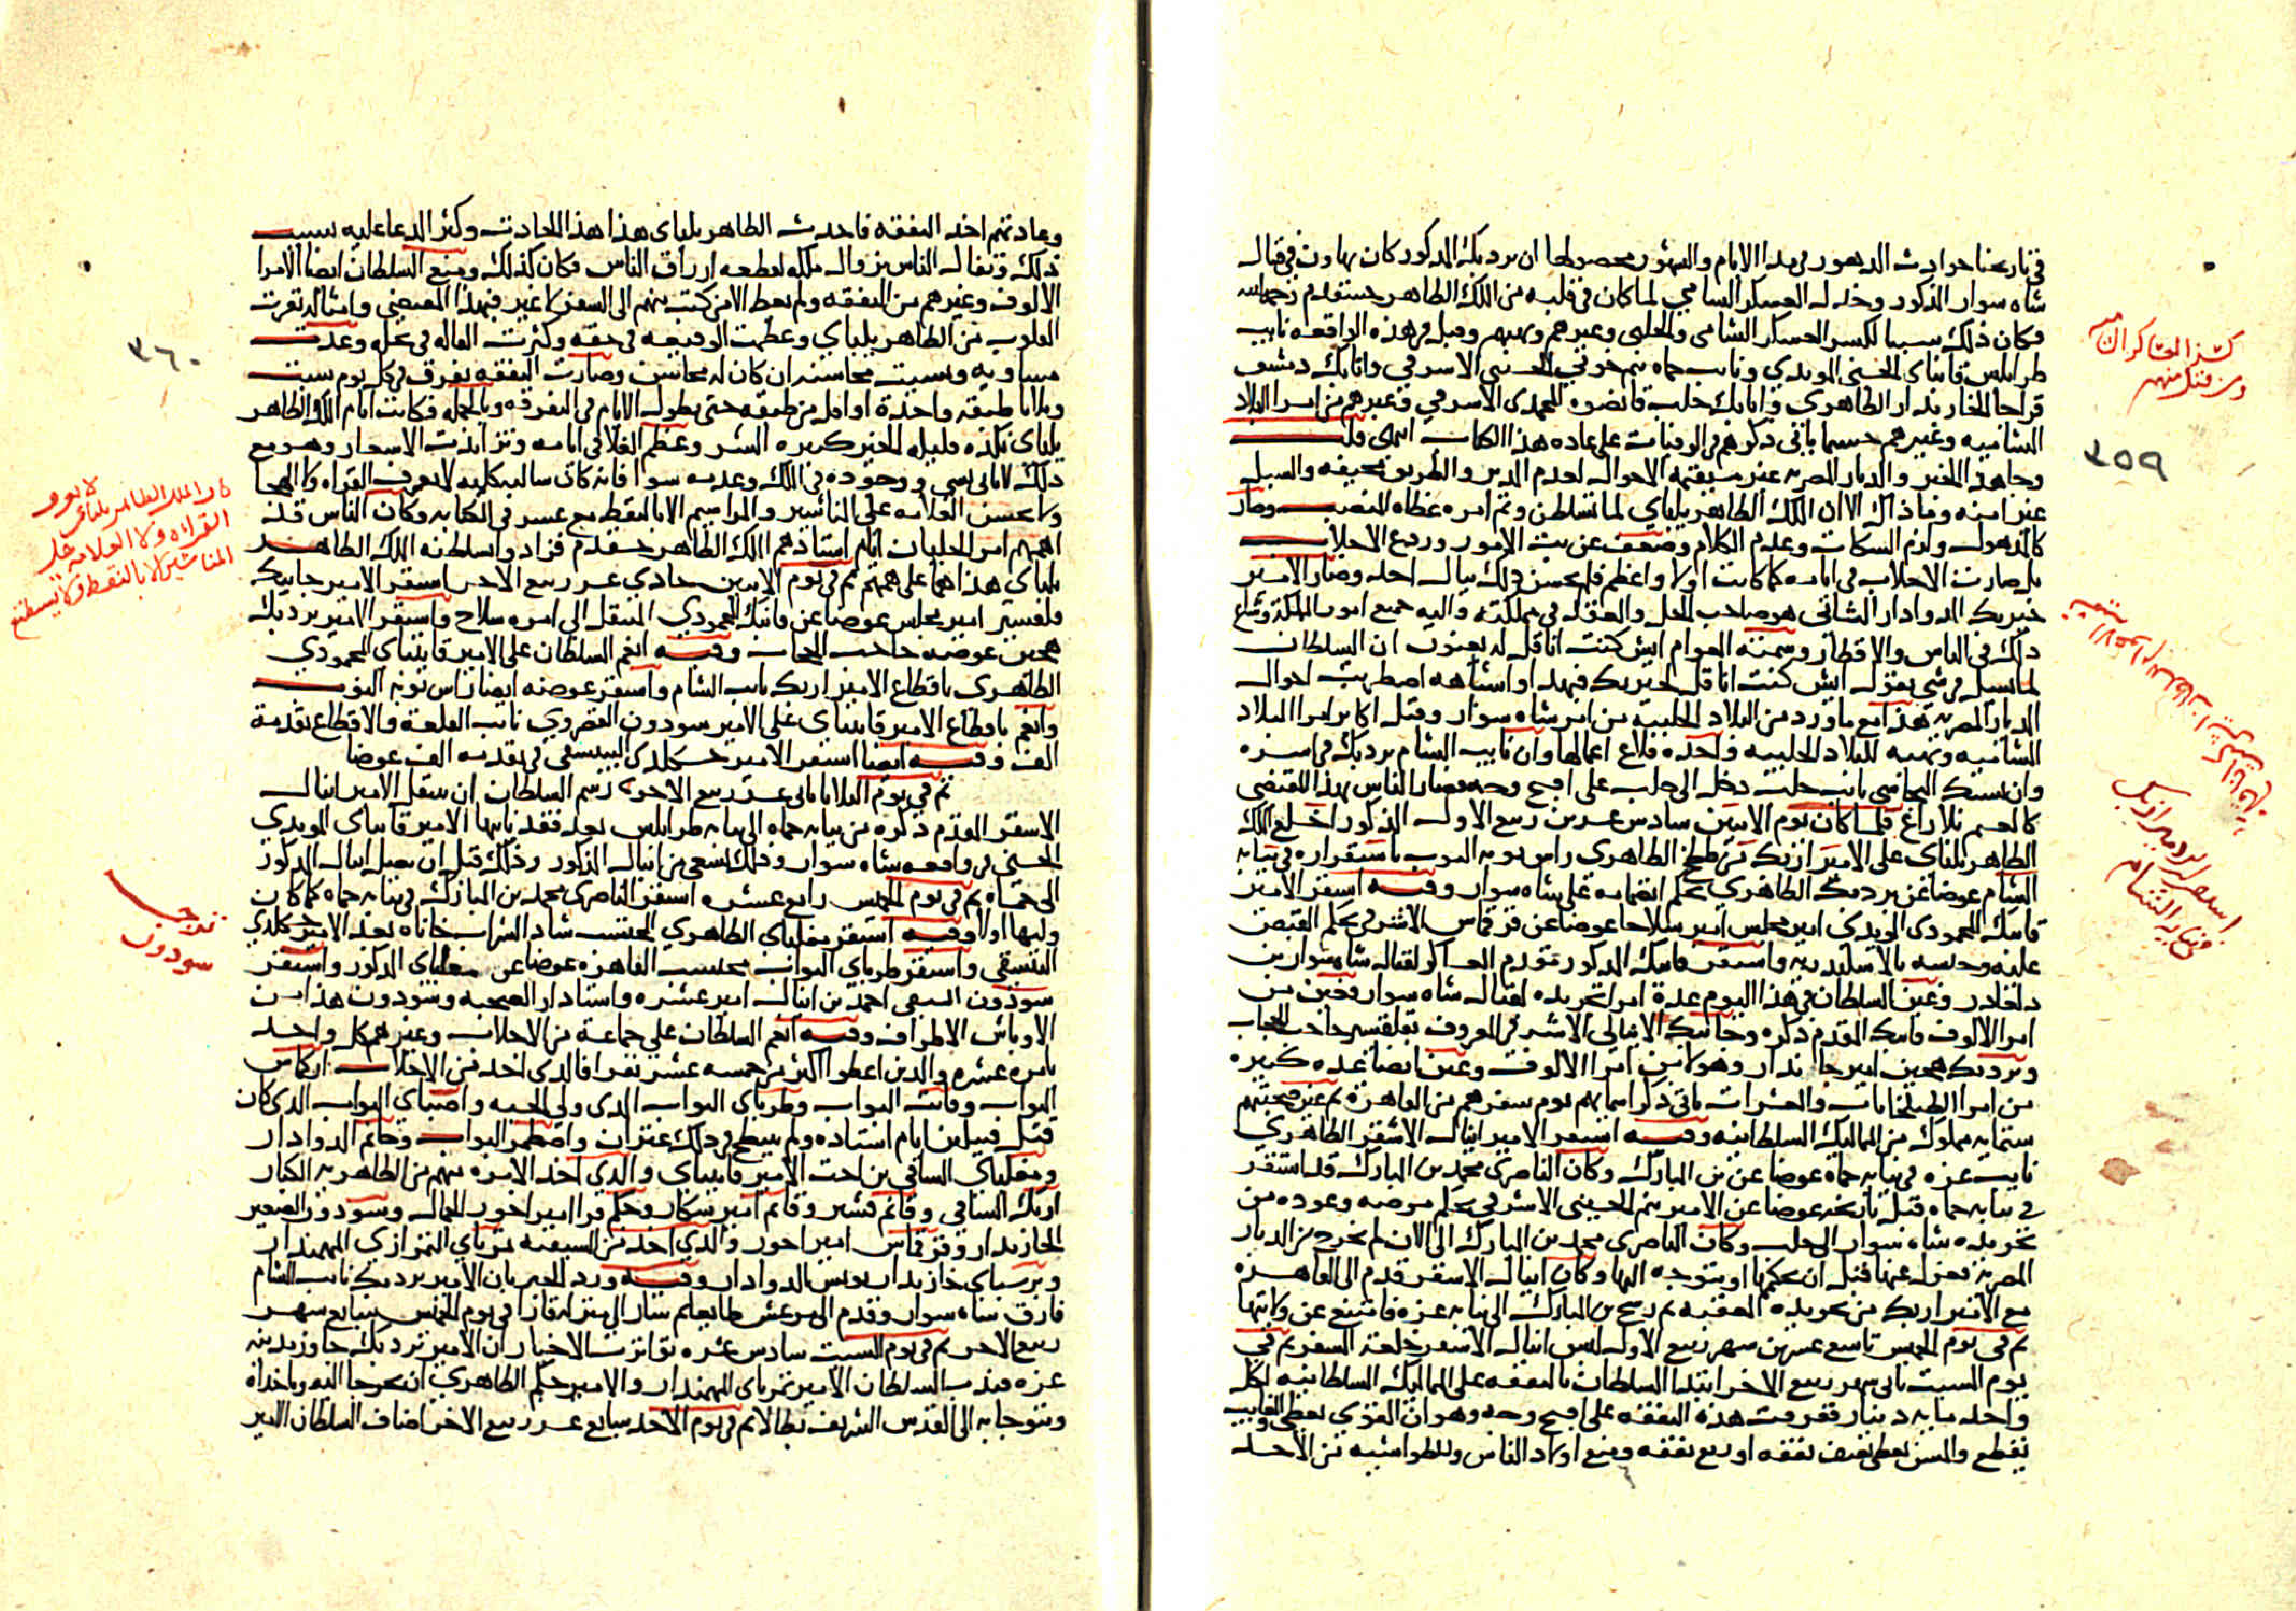 في تاريخنا حوادث الدهور في مدا الايام والشهور محصوطها ان بردبك المذكور كان تهاون في قتال
شاه سوار المذكور وخذل العسكر الشامي لما كان في قلبه من الملك الظاهر خشقدم رحمه الله
فكان ذلك سببا لكسر العسكر الشامي والحلبي وغيرهم ونهبهم وقتل في هذه الواقعة نايب
طرابلس قانباي الحسني المويدي ونايب حماه تنم خوني الحسيني الاشرفي واتابك دمشق
قراجا الخازندار الظاهري واتابك حلب قانصوه المحمدي الاشرفي وغيرهم من امرا البلاد
الشاميه وغيرهم حسبما ياتي ذكرهم في الوفيات على عاده هذا الكتاب انتهى قلت
وجا هذا الخبر والديار المصريه غير مستقيمة الاحوال لعدم المدبر والطريق مخيفه والسبل
غير امنه وما ذاك الا ان الملك الظاهر يلباي لما تسلطن وتم امره غطاه المنصب وصار
كالمذهول ولزم السكات وعدم الكلام وضعف عن بت الامور وردع الاجلاب
بل صارت الاجلاب في ايامه كما كانت اولا واعظم فلم يحسن ذلك ببال احد وصار الامير
خيربك الدوادار الثاني هو صاحب الحل والعقد في مملكته واليه جميع امور المملكة وشاع
ذلك في الناس والاقطار وسمته العوام ايش كنت انا قل له يعنون ان السلطان
لما يسيل في شي يقول ايش كنت انا قل لخيربك فبهذا واشباهه اضطربت احوال
الديار المصريه هذا مع ما ورد من البلاد الحلبيه من امر شاه سوار وقتل اكابر امرا البلاد
الشاميه ونهبه للبلاد الحلبيه واخذه قلاع اعمالها وان نايب الشام بردبك في اسره
وان يشبك البجاسي نايب حلب دخل الى حلب على اقبح وجه فصار الناس بهذا المقتضى
كالغنم بلا راع فلما كان يوم الاثنين سادس عشرين ربيع الاول المذكور اخلع الملك
الظاهر يلباي على الامير ازبك من ططخ الظاهري راس نوبه النوب باستقراره في نيابه
الشام عوضا عن بردبك الظاهري بحكم انضمامه على شاه سوار وفيه استقر الامير
قانبك المحمودي المويدي امير مجلس امير سلاحا عوضا عن قرقماس الاشرفي بحكم القبض
عليه وحبسه بالاسكندريه واستقر قانبك المذكور مقدم العساكر لقتال شاه سوار بن
دلغادر وعين السلطان في هذا اليوم عدة امرا تجريده لقتال شاه سوار فعين من
امرا الالوف قانبك المقدم ذكره وجانبك الاينالي الاشرفي المعروف بقلقسيز حاجب الحجاب
وبردبك هجين امير جاندار وهولا من امرا الالوف وعين ايضا عده كبيره
من امرا الطبلخانات والعشرات ياتي ذكر اسمايهم يوم سفرهم من القاهرة ثم عين صحبتهم
ستمايه مملوك من المماليك السلطانيه وفيه استقر الامير اينال الاشقر الظاهري
نايب غزه في نيابه حماه عوضا عن بن المبارك وكان الناصري محمد بن المبارك قد استقر
في نيابه حماه قبل تاريخه عوضا عن الامير تنم الحسيني الاشرفي بحكم مرضه وعوده من
تجريده شاه سوار الى حلب وكان الناصري محمد بن المبارك الى الان لم يخرج من الديار
المصريه فعزل عنها قبل ان يحكمها او يتوجه اليها وكان اينال الاشقر قدم الى القاهره
مع الامير ازبك من تجريده العقبه ثم رسم لابن المبارك الى نيابه غزه فامتنع عن ولايتها
ثم في يوم الخميس تاسع عشرين شهر ربيع الاول لبس اينال الاشقر خلعة السفر ثم في
يوم السبت ثاني شهر ربيع الاخر ابتدا السلطان بالنفقه على المماليك السلطانيه لكل
واحد مايه دينار ففرقت هذه النفقه على اقبح وجه وهو ان القوي يعطى والغايب
يقطع والمسن يعطى نصف نفقه او ربع نفقه ومنع اولاد الناس والطواشيه من الاخذ
كسر العساكر الشاميه
ومن قتل منهم
٣٥٩
استقرار بردبك ازبك
في نيابة الشام
وعادتهم اخذ النفقه فاحدث الظاهر يلباي هذا هذا الحادث وكثر الدعا عليه بسبب
ذلك وتفال الناس بزوال ملكه لقطعه ارزاق الناس فكان كذلك ومنع السلطان ايضا الامرا
الالوف وغيرهم من النفقه ولم يعط الا من كتب منهم الى السفر لا غير فبهذا المقتضى وامثاله نفرت
القلوب من الظاهر يلباي وعظمت الوقيعه في حقه وكثرت القاله في بخله وعدت
مساويه ونسيت محاسنه ان كان له محاسن وصارت النفقه تفرق في كل يوم سبت
وثلاثا طبقه واحدة او اقل من طبقه حتى تطول الايام في التفرقه وبالجمله فكانت ايام الملك الظاهر
يلباي نكده قليلة الخير كثيره الشر وعظم الغلا في ايامه وتزايدت الاسعار وهو مع
ذلك لا ياتي بشي ووجوده في الملك وعدمه سوا فانه كان سالبه كليه لا يعرف القراه ولا الهجا
ولا يحسن العلامه على المناشير والمراسيم الا بالنقط مع عسر في الكتابه وكان الناس قد
اهمهم امر الجلبان ايام استاذهم الملك الظاهر خشقدم فزاد وسلطنه الملك الظاهر
يلباي هذا هما على همهم ثم في يوم الاثنين حادي عشر ربيع الاخر استقر الامير جانبك
قلقسيز امير مجلس عوضا عن قانبك المحمودي المنتقل الى امره سلاح واستقر الامير بردبك
هجين عوضه حاجب الحجاب وفيه انعم السلطان على الامير قايتباي المحمودي
الظاهري باقطاع الامير ازبك نايب الشام واستقر عوضه ايضا راس نوبه النوب
وانعم باقطاع الامير قايتباي على الامير سودون القصروي نايب القلعة والاقطاع تقدمة
الف وفيه ايضا استقر الامير خشكلدي البيسقي في تقدمه الف عوضا
ثم في يوم الثلاثا ثاني عشر ربيع الاخر رسم السلطان ان ينتقل الامير اينال
الاشقر المقدم ذكره من نيابه حماه الى نيابه طرابلس بعد فقد نايبها الامير قانباي المويدي
الحسني في واقعه شاه سوار وذلك بسعي من اينال المذكور وذلك قبل ان يصل اينال المذكور
الى حماه ثم في يوم الخميس رابع عشره استقر الناصري محمد بن المبارك في نيابه حماه كما كان
وليها اولا وفيه استقر مغلباي الظاهري المحتسب شاد الشراب خاناه بعد الامير خشكلدي
البيسقي واستقر طرباي البواب محتسب القاهره عوضا عن مغلباي المذكور واستقر
سودون السيفي احمد بن اينال امير عشره واستادار الصحبه وسودون هذا من
الاوباش الاطراف وفيه انعم السلطان على جماعة من الاجلاب وغيرهم كل واحد
بامره عشره والذين اعطوا اكثر من خمسه عشر نفرا فالذي اخذ من الاجلاب اركماس
البواب وقايت البواب وطرباي البواب الذي ولي الحسبه واصباي البواب الذي كان
قتل قتيلين ايام استاذه ولم ينتطح في ذلك عنزان واصطمر البواب وجانم الدوادار
ومغلباي الساقي بن اخت الامير قايتباي والذي اخذ الامره منهم من الظاهريه الكبار
ازبك الساقي وقانم قشير وقانم امير شكار وجكم قرا امير اخور الجمال وسودون الصغير
الخازندار وقرقماس امير اخور والذي اخذ من السيفيه تمرباي التمرازي المهمندار
وبرسباي خازندار يونس الدوادار وفيه ورد الخبر بان الامير بردبك نايب الشام
فارق شاه سوار وقدم الى مرعش طايعا ثم سار الى منزله قارا في يوم الخميس سابع شهر
ربيع الاخر ثم في يوم السبت سادس عشره تواترت الاخبار ان الامير بردبك جاوز مدينه
غزه فندب السلطان الامير تمرباي المهمندار والامير جكم الظاهري ان يخرجا اليه وياخذاه
ويتوجها به الى القدس الشريف بطالا ثم في يوم الاحد سابع عشر ربيع الاخر اضاف السلطان الى
٣٦٠
كان الملك الظاهر يلباي لا يعرف
القراه ولا العلامه على
المناشير الا بالنقط ولا يستطيع
سودون